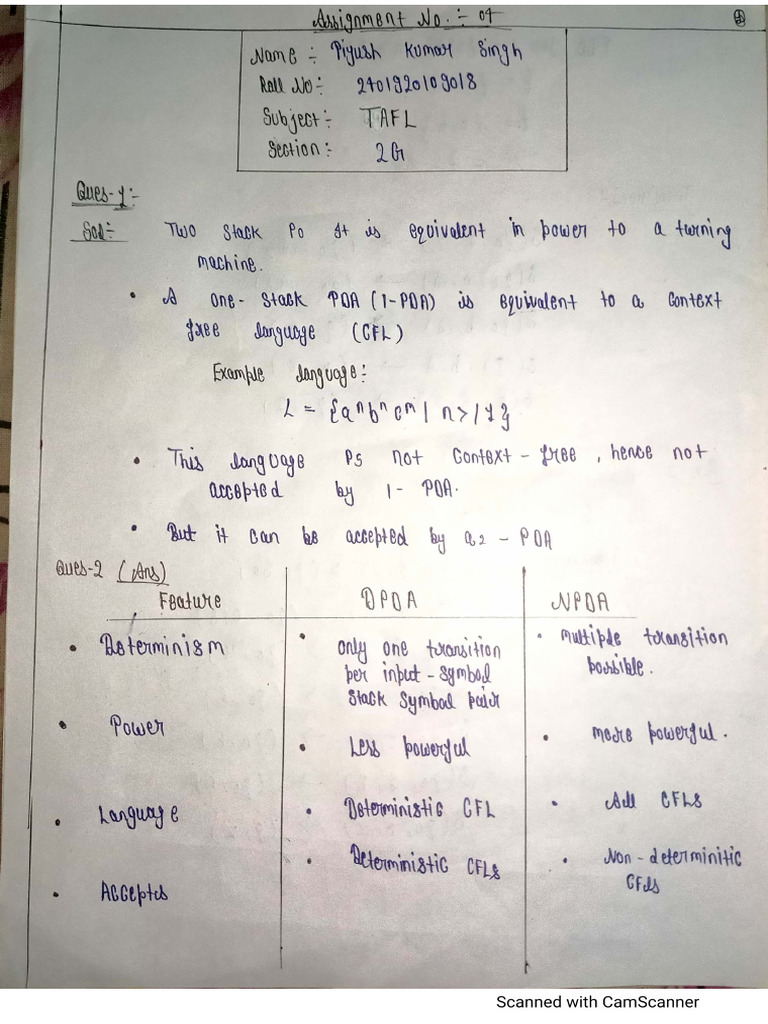 Assignment No. :- 04
Name :- Piyush Kumar Singh
Roll No :- 2401920109018
Subject :- TAFL
Section :- 2G
Ques-1 :-
Sol :- Two Stack Po It is equivalent in power to a turning
machine.
• A one-Stack PDA (1-PDA) is equivalent to a Context
free language (CFL)
Example language :-
L = {aⁿbⁿcᵐ | n>/1}
• This language is not Context-free, hence not
accepted by 1-PDA.
• But it can be accepted by a 2-PDA
Ques-2 (Ans)
Feature DPDA NPDA
• Determinism • only one transition • multiple transition
per input-symbol possible.
Stack Symbol pair
• Power • Less powerful • more powerful.
• Language • Deterministic CFL • All CFLs
• Accepts • Deterministic CFLs • Non-determinitic
CFLs
Scanned with CamScanner